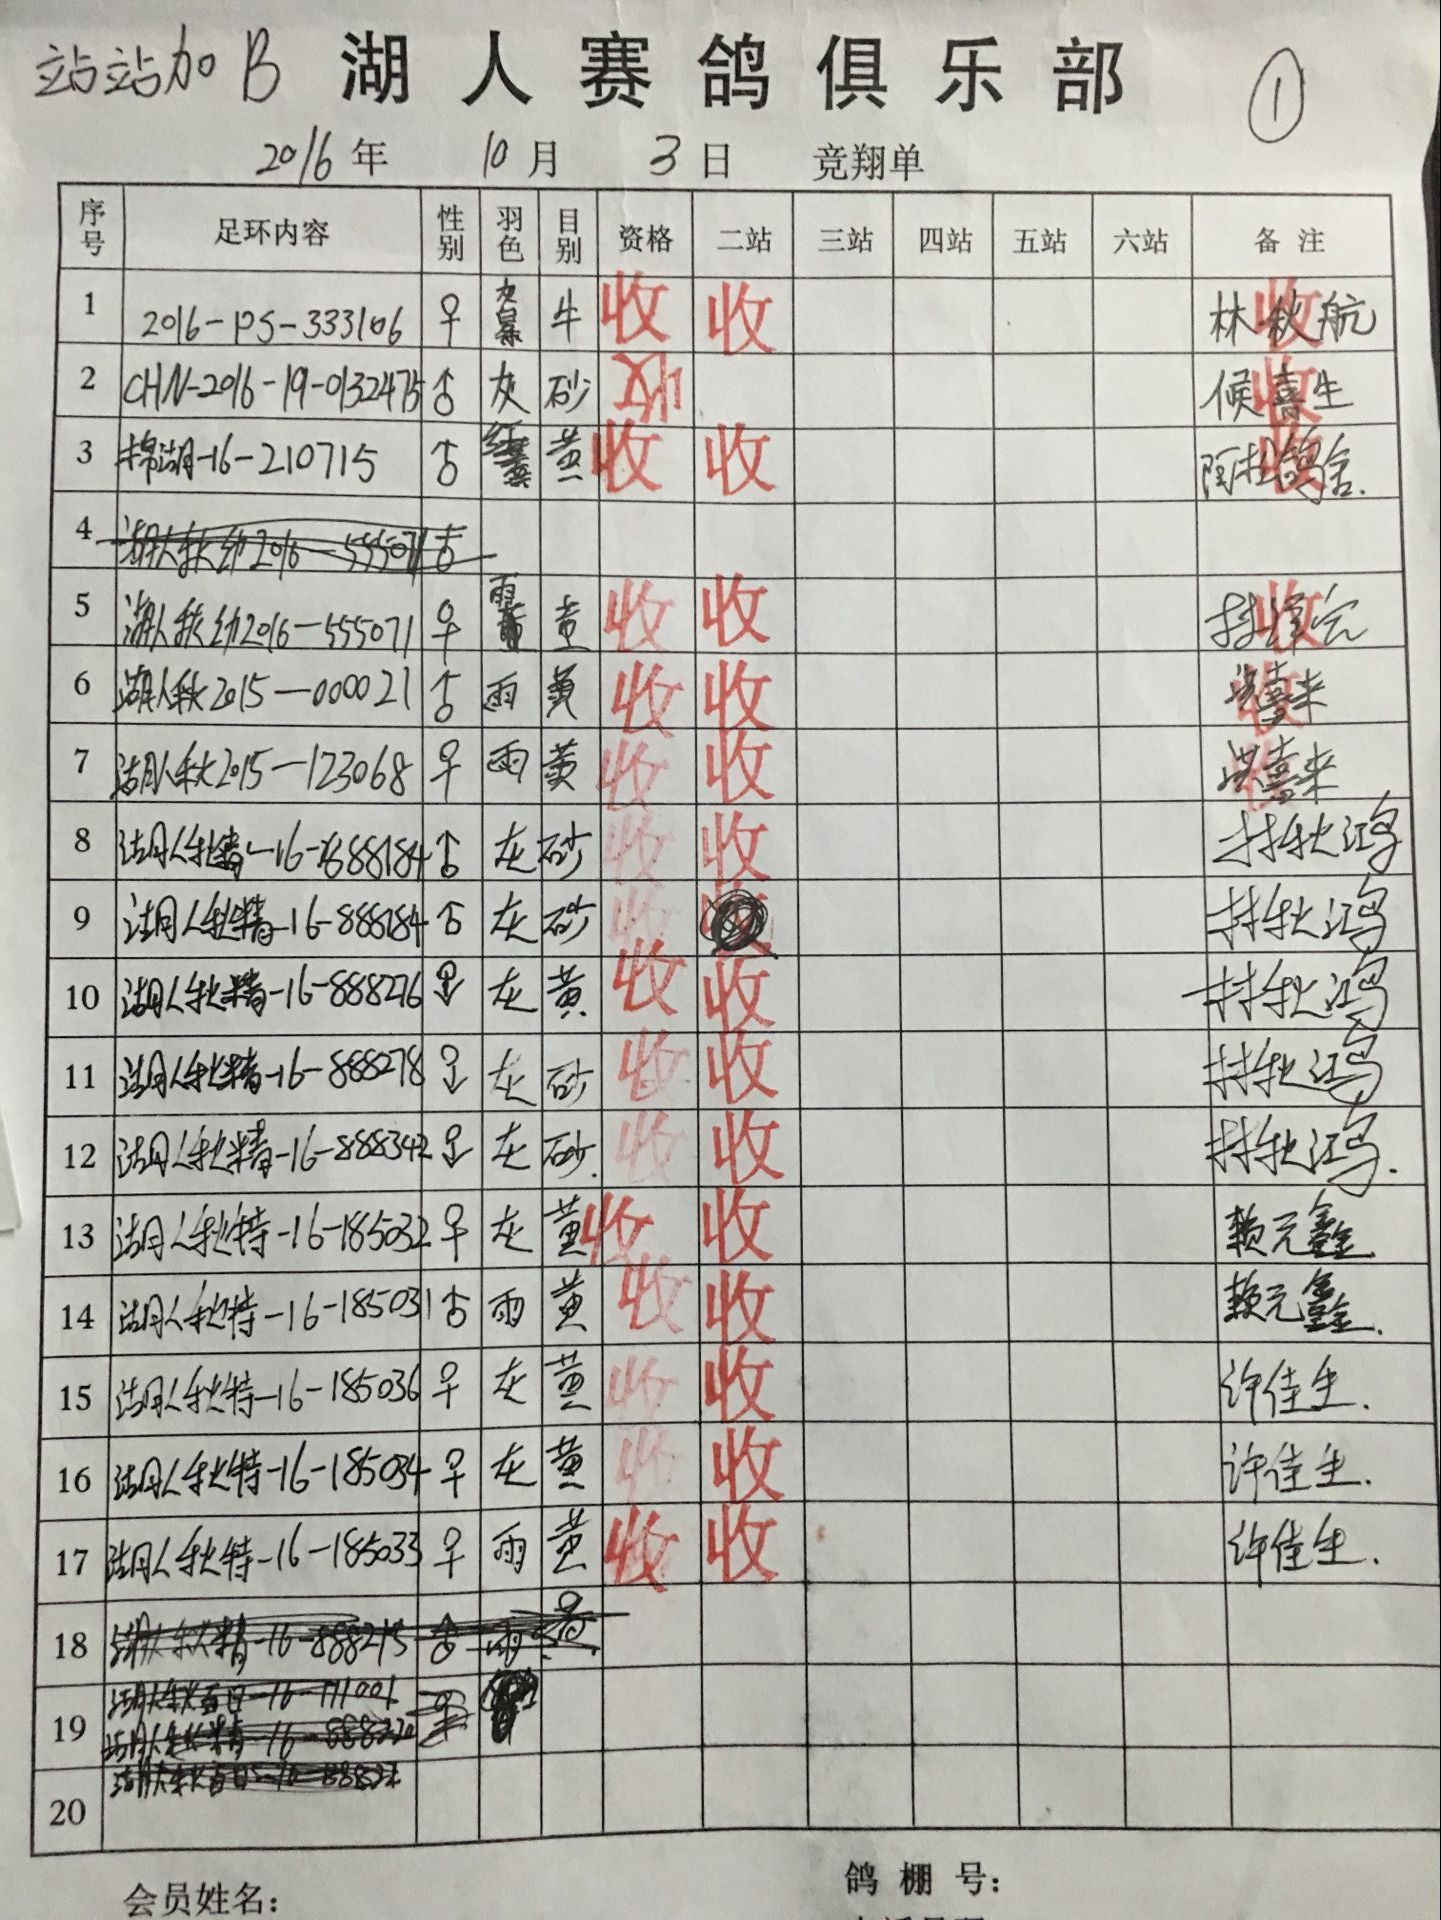 站站加 B 湖人赛鸽俱乐部 ①
2016年 10月 3日 竞翔单
序号 足环内容 性别 羽色 目别 资格 二站 三站 四站 五站 六站 备注
1 2016-PS-333106 ♀ 牛 收 收 林秋航 收
2 CHN-2016-19-0132475 ♂ 灰 砂 候喜生 收
3 棉湖-16-210715 ♂ 黄 收 收 鸽舍. 收
4 湖人秋幼2016-555071 ♂
5 湖人秋幼2016-555071 ♀ 雨 黄 收 收 收
6 湖人秋2015-000021 ♂ 雨 黄 收 收 洪喜来 收
7 湖人秋2015-123068 ♀ 雨 黄 收 收 洪喜来 收
8 湖人秋精-16-888184 ♂ 灰 砂 收 收 林秋鸿
9 湖人秋精-16-888184 ♂ 灰 砂 收 林秋鸿
10 湖人秋精-16-888276 灰 黄 收 收 林秋鸿
11 湖人秋精-16-888278 ♀ 灰 砂 收 收 林秋鸿
12 湖人秋精-16-888342 ♀ 灰 砂. 收 收 林秋鸿.
13 湖人秋特-16-185032 ♀ 灰 黄 收 收 赖元鑫
14 湖人秋特-16-185031 ♂ 雨 黄 收 收 赖元鑫.
15 湖人秋特-16-185036 ♀ 灰 黄 收 收 许佳生.
16 湖人秋特-16-185034 ♀ 灰 黄 收 收 许佳生.
17 湖人秋特-16-185033 ♀ 雨 黄 收 收 许佳生.
18 湖人秋精-16-888215 ♂ 雨 黄
19 湖人秋百日-16-111001 ♀
湖人秋精-16-888220
20
会员姓名: 鸽棚号: